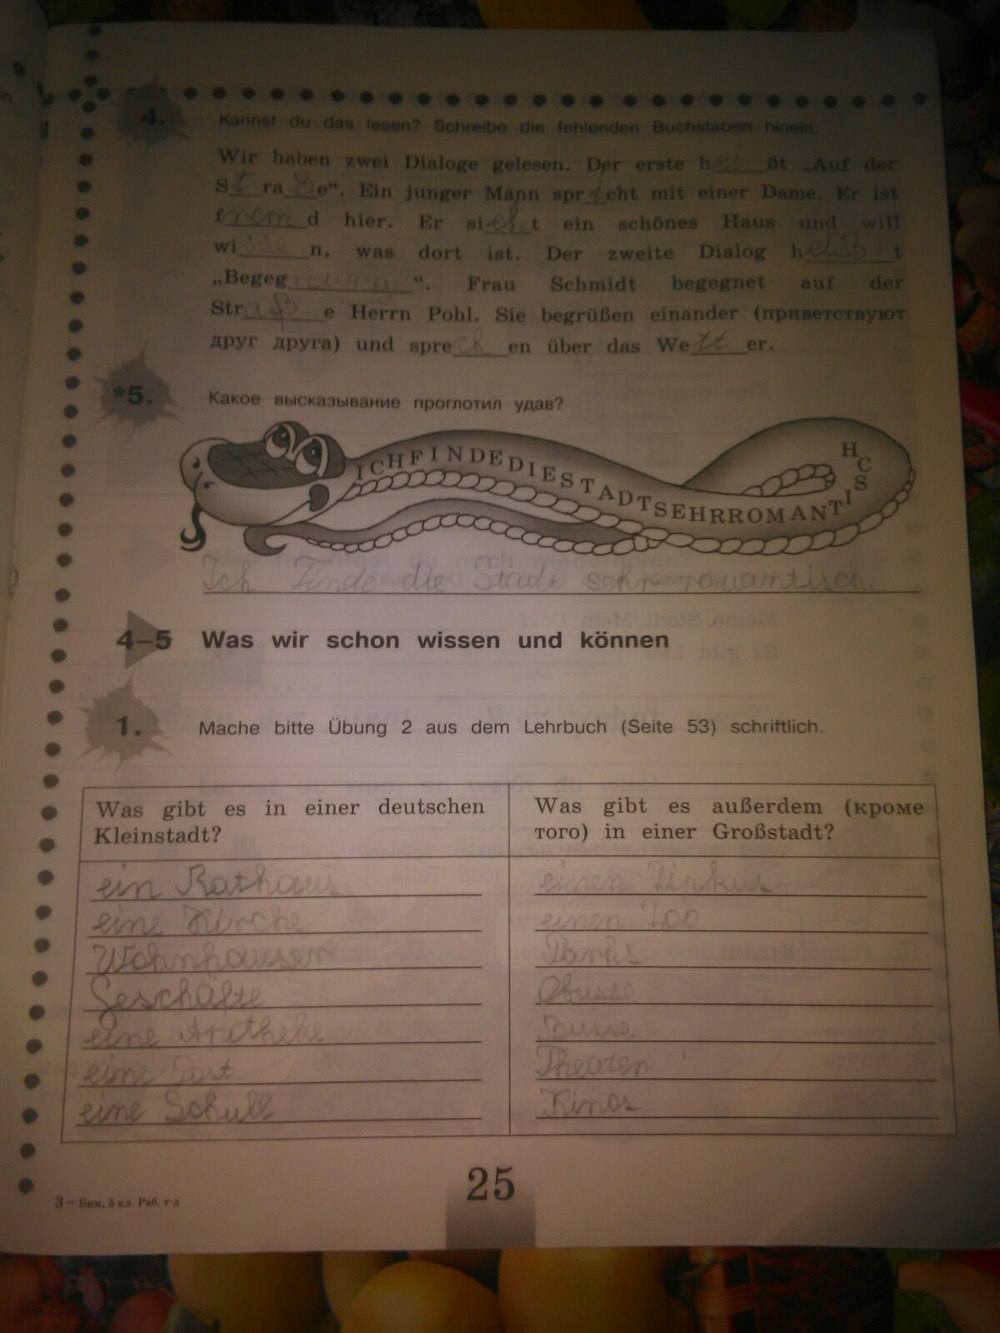 4. Kannst du das lesen? Schreibe die fehlenden Buchstaben hinein.
Wir haben zwei Dialoge gelesen. Der erste heißt „Auf der
Straße“. Ein junger Mann spricht mit einer Dame. Er ist
fremd hier. Er sieht ein schönes Haus und will
wissen, was dort ist. Der zweite Dialog heißt
„Begegnung“. Frau Schmidt begegnet auf der
Straße Herrn Pohl. Sie begrüßen einander (приветствуют
друг друга) und sprechen über das Wetter.
*5. Какое высказывание проглотил удав?
ICHFINDEDIESTADTSEHRROMANTISCH
Ich finde die Stadt sehr romantisch.
4–5 Was wir schon wissen und können
1. Mache bitte Übung 2 aus dem Lehrbuch (Seite 53) schriftlich.
Was gibt es in einer deutschen
Kleinstadt?
ein Rathaus
eine Kirche
Wohnhauser
Geschäfte
eine Apotheke
eine Post
eine Schule
Was gibt es außerdem (кроме
того) in einer Großstadt?
einen Zirkus
einen Zoo
Parks
Busse
Theater
Kinos
25
3 – Бим, 5 кл. Раб. т-д